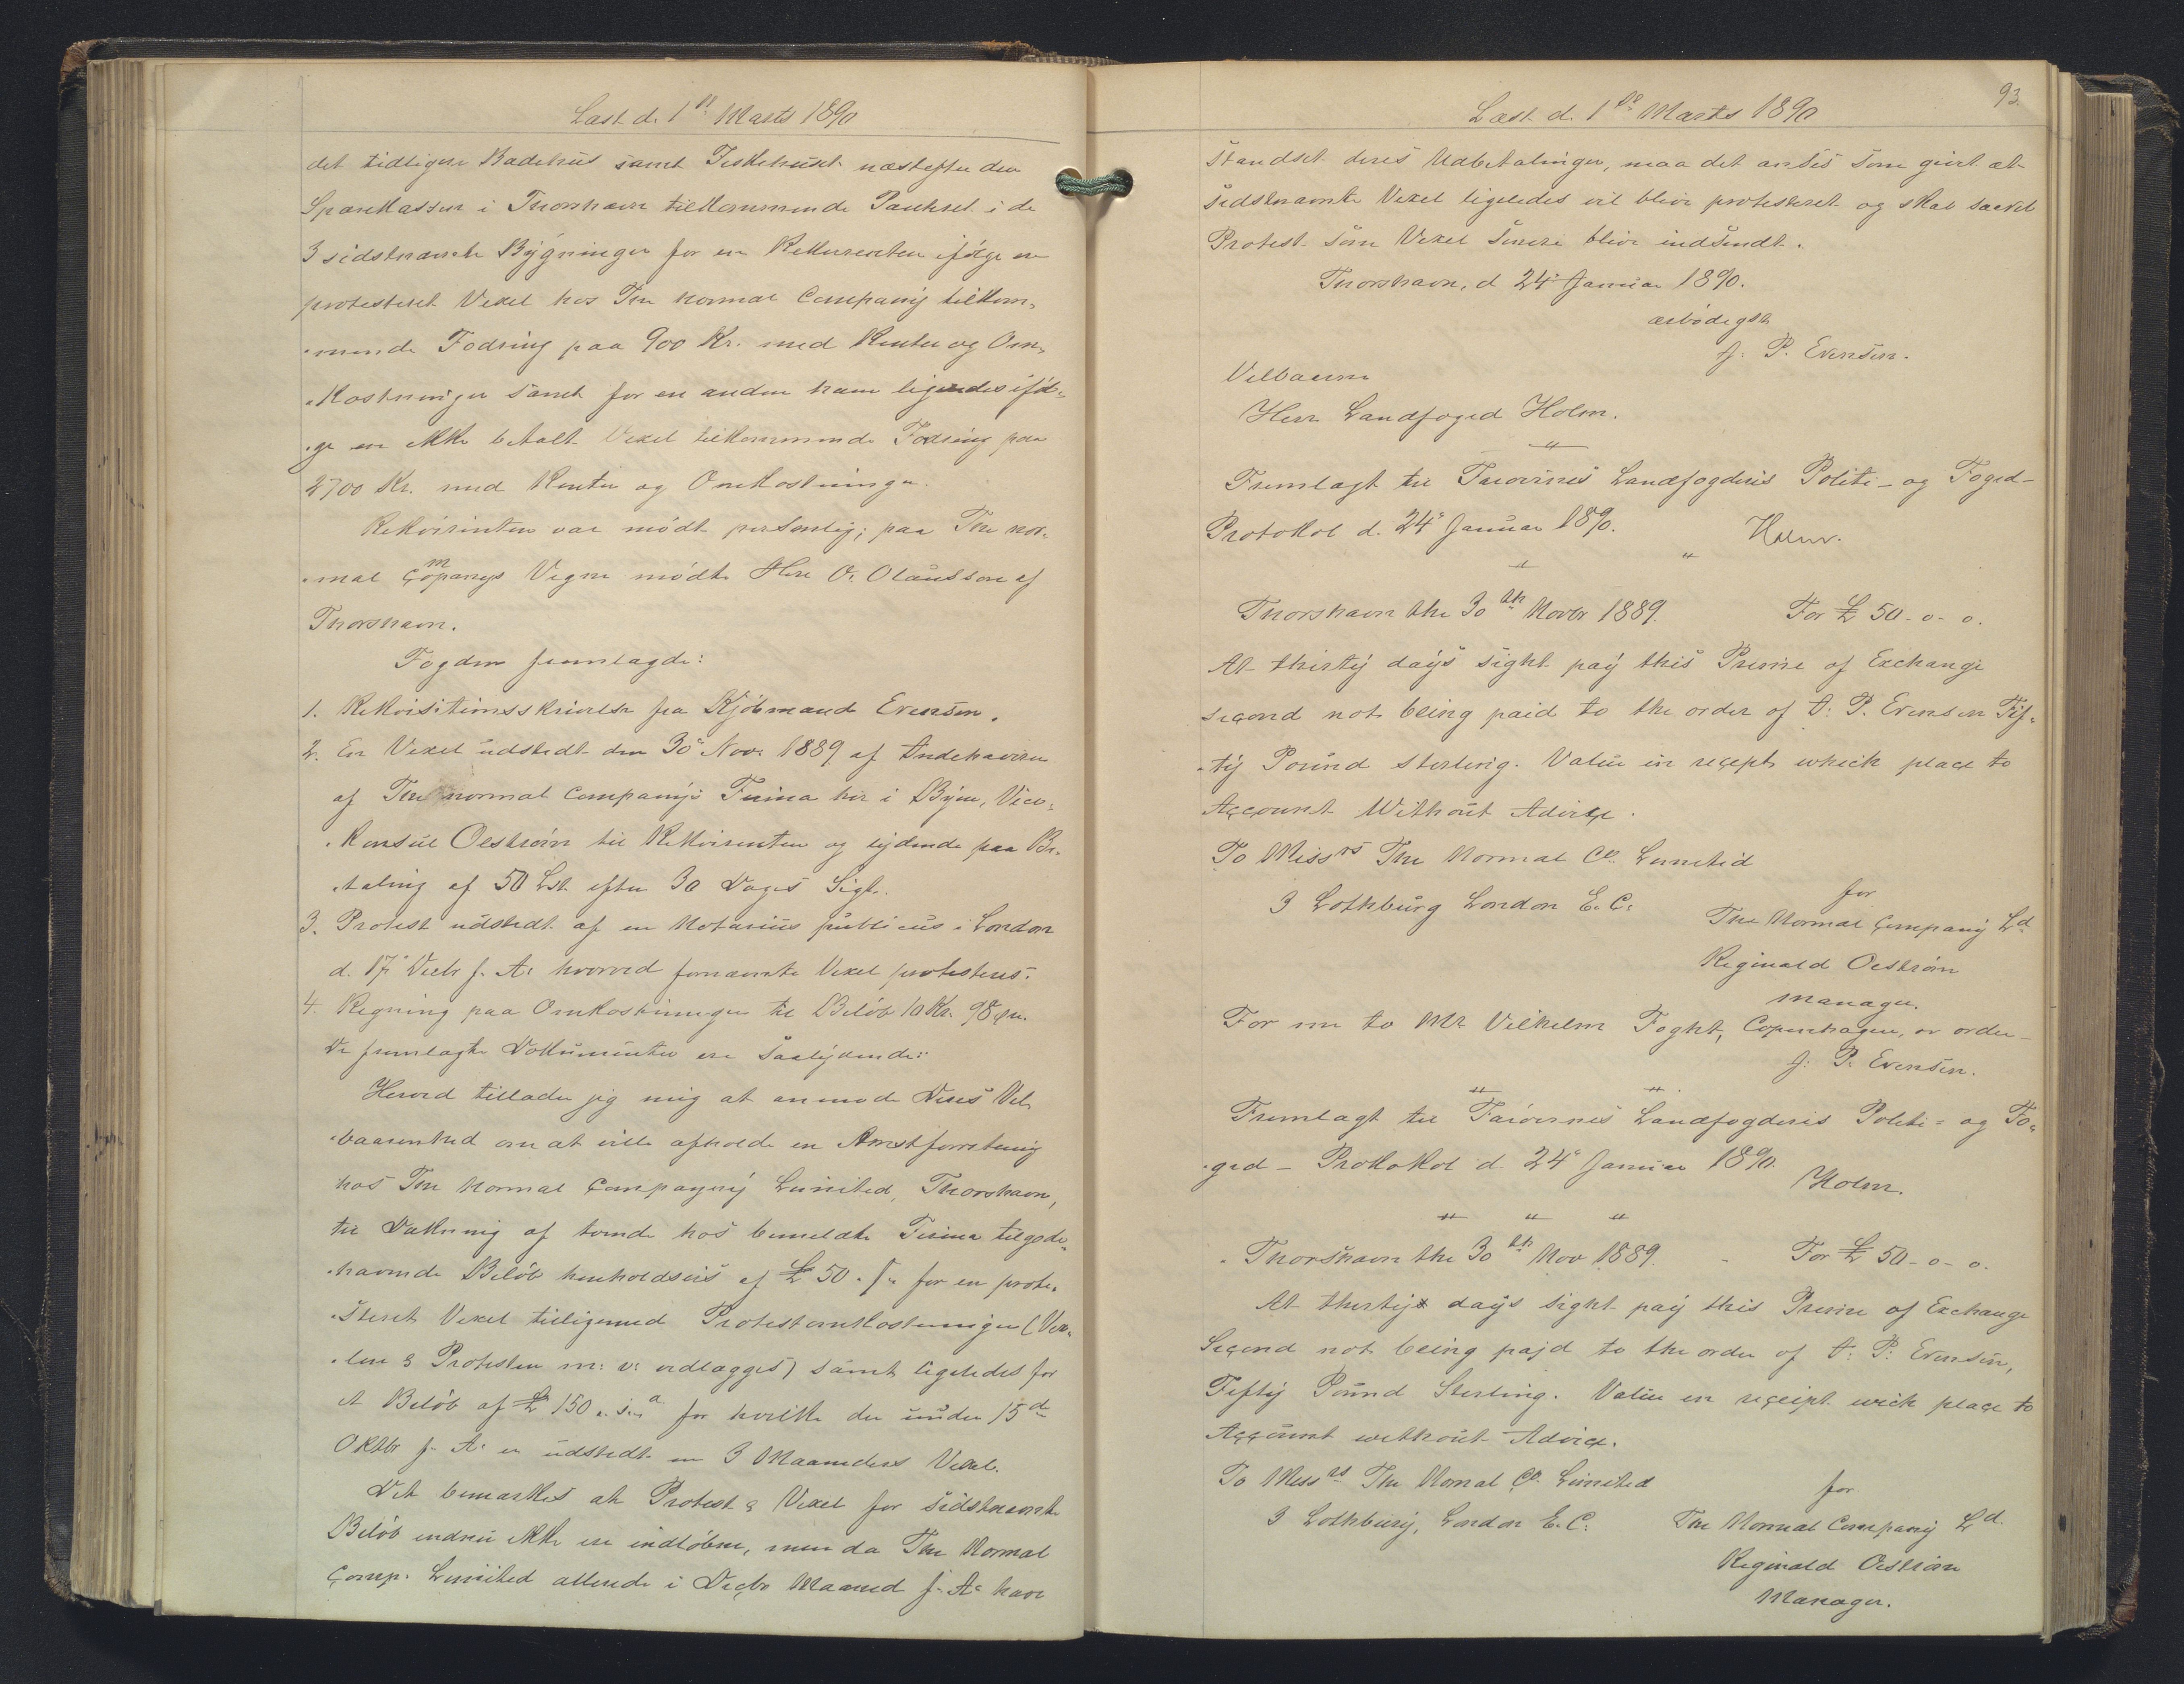 Læst d. 1ste Marts 1890
det tidligere Badehus samt Fiskehuset næstefter den
Sparekassen i Thorshavn tilkommende Panteret i de
3 sidstnævnte Bygninger for en Rekvirenten ifølge en
protesteret Vexel hos The normal Company tilkom-
mende Fodring paa 900 Kr. med Renter og Om-
kostninger samt for en anden ham ligeledes iføl-
ge en ikke betalt Vexel tilkommende Fodring paa
2700 Kr. med Renter og Omkostninger.
Rekvirenten var mødt personlig; paa The nor-
mal Companys Vegne mødte Herr O. Olausson af
Thorshavn.
Fogden fremlagde:
1. Rekvisitionsskrivelse fra Kjøbmand Evensen.
2. En Vexel udstedt den 30' Nov: 1889 af Indehaveren
af The normal Companys Firma her i Byen, Vice-
Konsul Oestrøm til Rekvirenten og lydende paa Be-
taling af 50 Lst. efter 30 Dages Sigt.
3. Protest udstedt af en Notarius publicus i London
d. 17' Decbr f. A. hvorved fornævnte Vexel protesteres.
4. Regning paa Omkostninger til Beløb 10 Kr. 98 Øre.
De fremlagte Dokumenter ere saalydende:
Herved tillader jeg mig at anmode Deres Vel-
baarenhed om at ville afholde en Arrestforretning
hos The Normal Company Limited, Thorshavn,
til Dækning af tvende hos bemeldte Firma tilgode-
havende Beløb henholdsvis af £ 50. for en prote-
steret Vexel tilligemed Protestomkostninger (Vex-
len & Protesten m: v: vedlægges) samt ligeledes for
et Beløb af £ 150 for hvilke der under 15de
Oktbr f. A. er udstedt en 3 Maaneders Vexel.
Det bemærkes at Protest & Vexel for sidstnævnte
Beløb endnu ikke ere indløbne, men da The Normal
Comp. Limited allerede i Decbr Maaned f. A. have
93.
Læst d. 1ste Marts 1890
standset deres Udbetalinger, maa det anses som givet at
sidstnævnte Vexel ligeledes vil blive protesteret og skal saavel
Protest som Vexel senere blive indsendt.
Thorshavn, d 24' Januar 1890.
ærbødigst
J. P. Evensen.
Velbaarne
Herr Landfoged Holm.
"
Fremlagt til Færøernes Landfogderis Politi- og Foged-
Protokol d. 24' Januar 1890.
Holm.
" "
Thorshavn the 30th Novbr 1889. For £ 50-0-0.
At thirty days sight pay this Preme of Exchange
second not being paid to the order of J: P. Evensen Fif-
ty Pound sterling. Value in recept which place to
Account Without Advice.
To Messrs The Normal Co. Limetid
3 Lothburg London E. C.
for
The Normal Company Ld
Reginald Oestrøm
manager.
For me to Mr Vilhelm Foght, Copenhagen, or order
J. P. Evensen.
" "
Fremlagt til Færøernes Landfogderis Politi- og Fo-
ged- Protokol d. 24' Januar 1890.
Holm.
" " "
Thorshavn the 30th Nov 1889. - For £ 50-0-0.
At thirty days sight pay this Preme of Exchange
Second not being pajd to the order of J: P: Evensen,
Fifty Pound Sterling. Value in receipt wich place to
Account without Advice.
To Messrs The Normal Co. Limited
3 Lothbury, London E. C.
for
The Normal Company Ld.
Reginald Oestrøm
Manager.